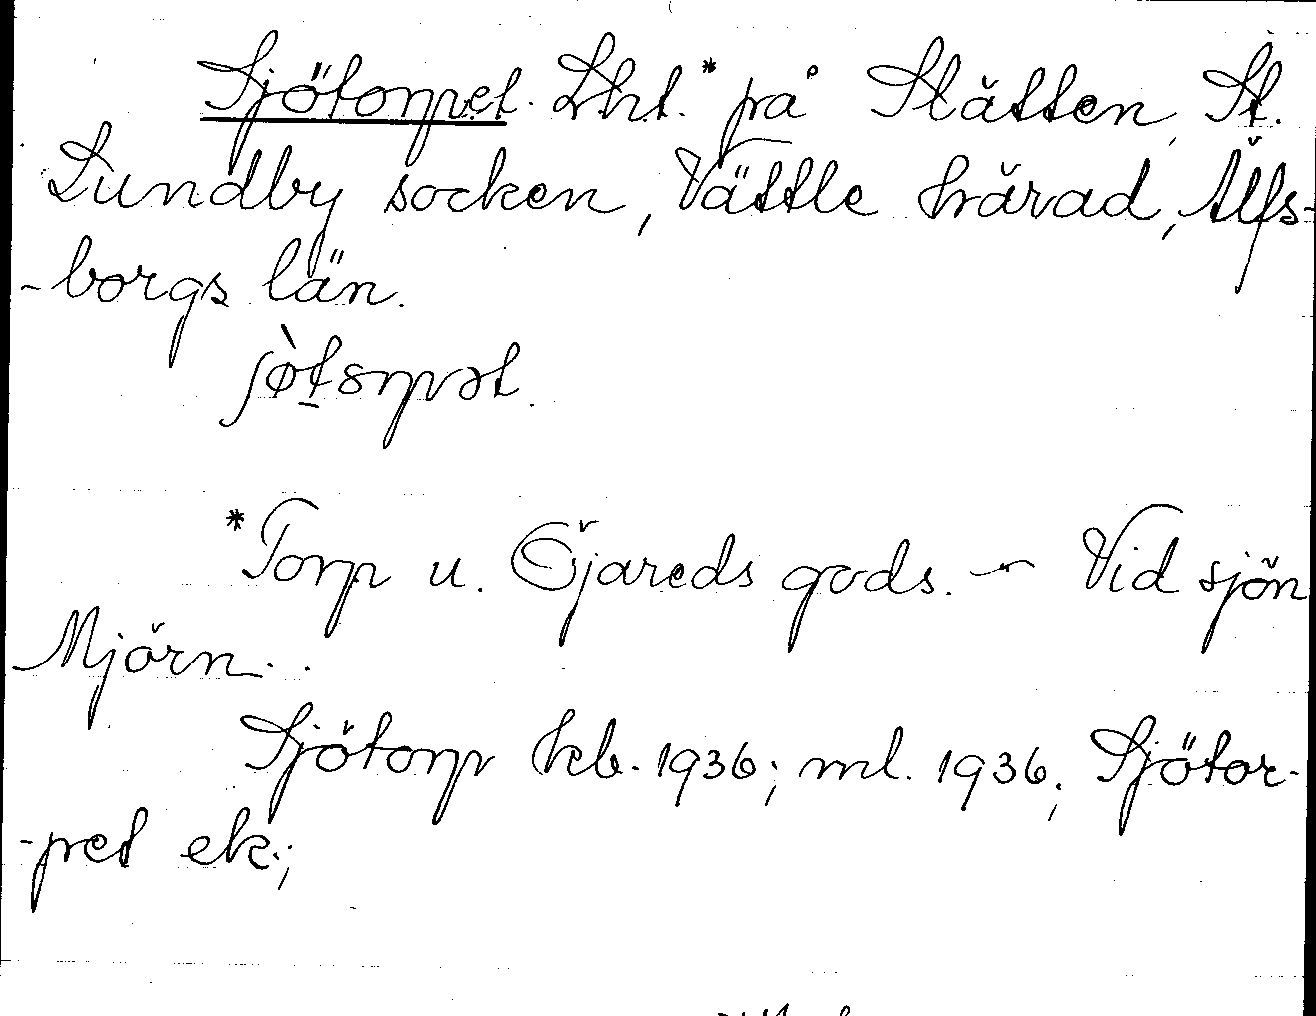 Sjötorpet. Lht.* på Slätten, St.
Lundby socken, Vättle härad, Älfs-
-borgs län.
*Torp u. Öjareds gods. — Vid sjön
Mjörn.
Sjötorp kb. 1936; ml. 1936; Sjötor-
-pet ek.;